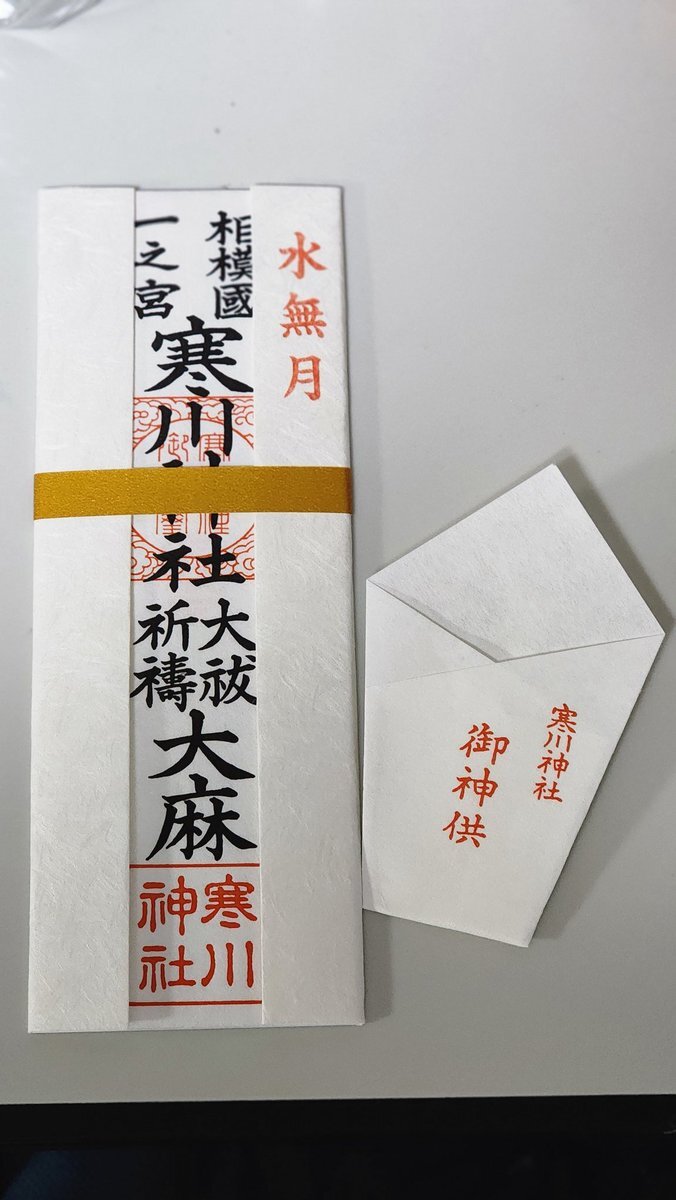 水無月
相模國
一之宮
寒川神社
大祓
祈禱
大麻
寒川
神社
寒川神社
御神供